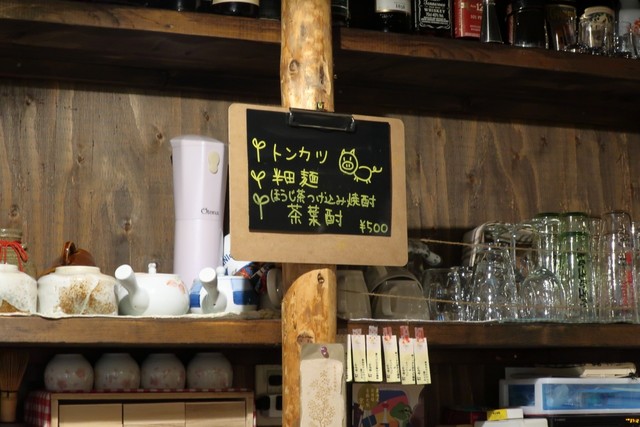 トンカツ
半田麺
ほうじ茶つけ込み焼酎
茶葉酎
¥500